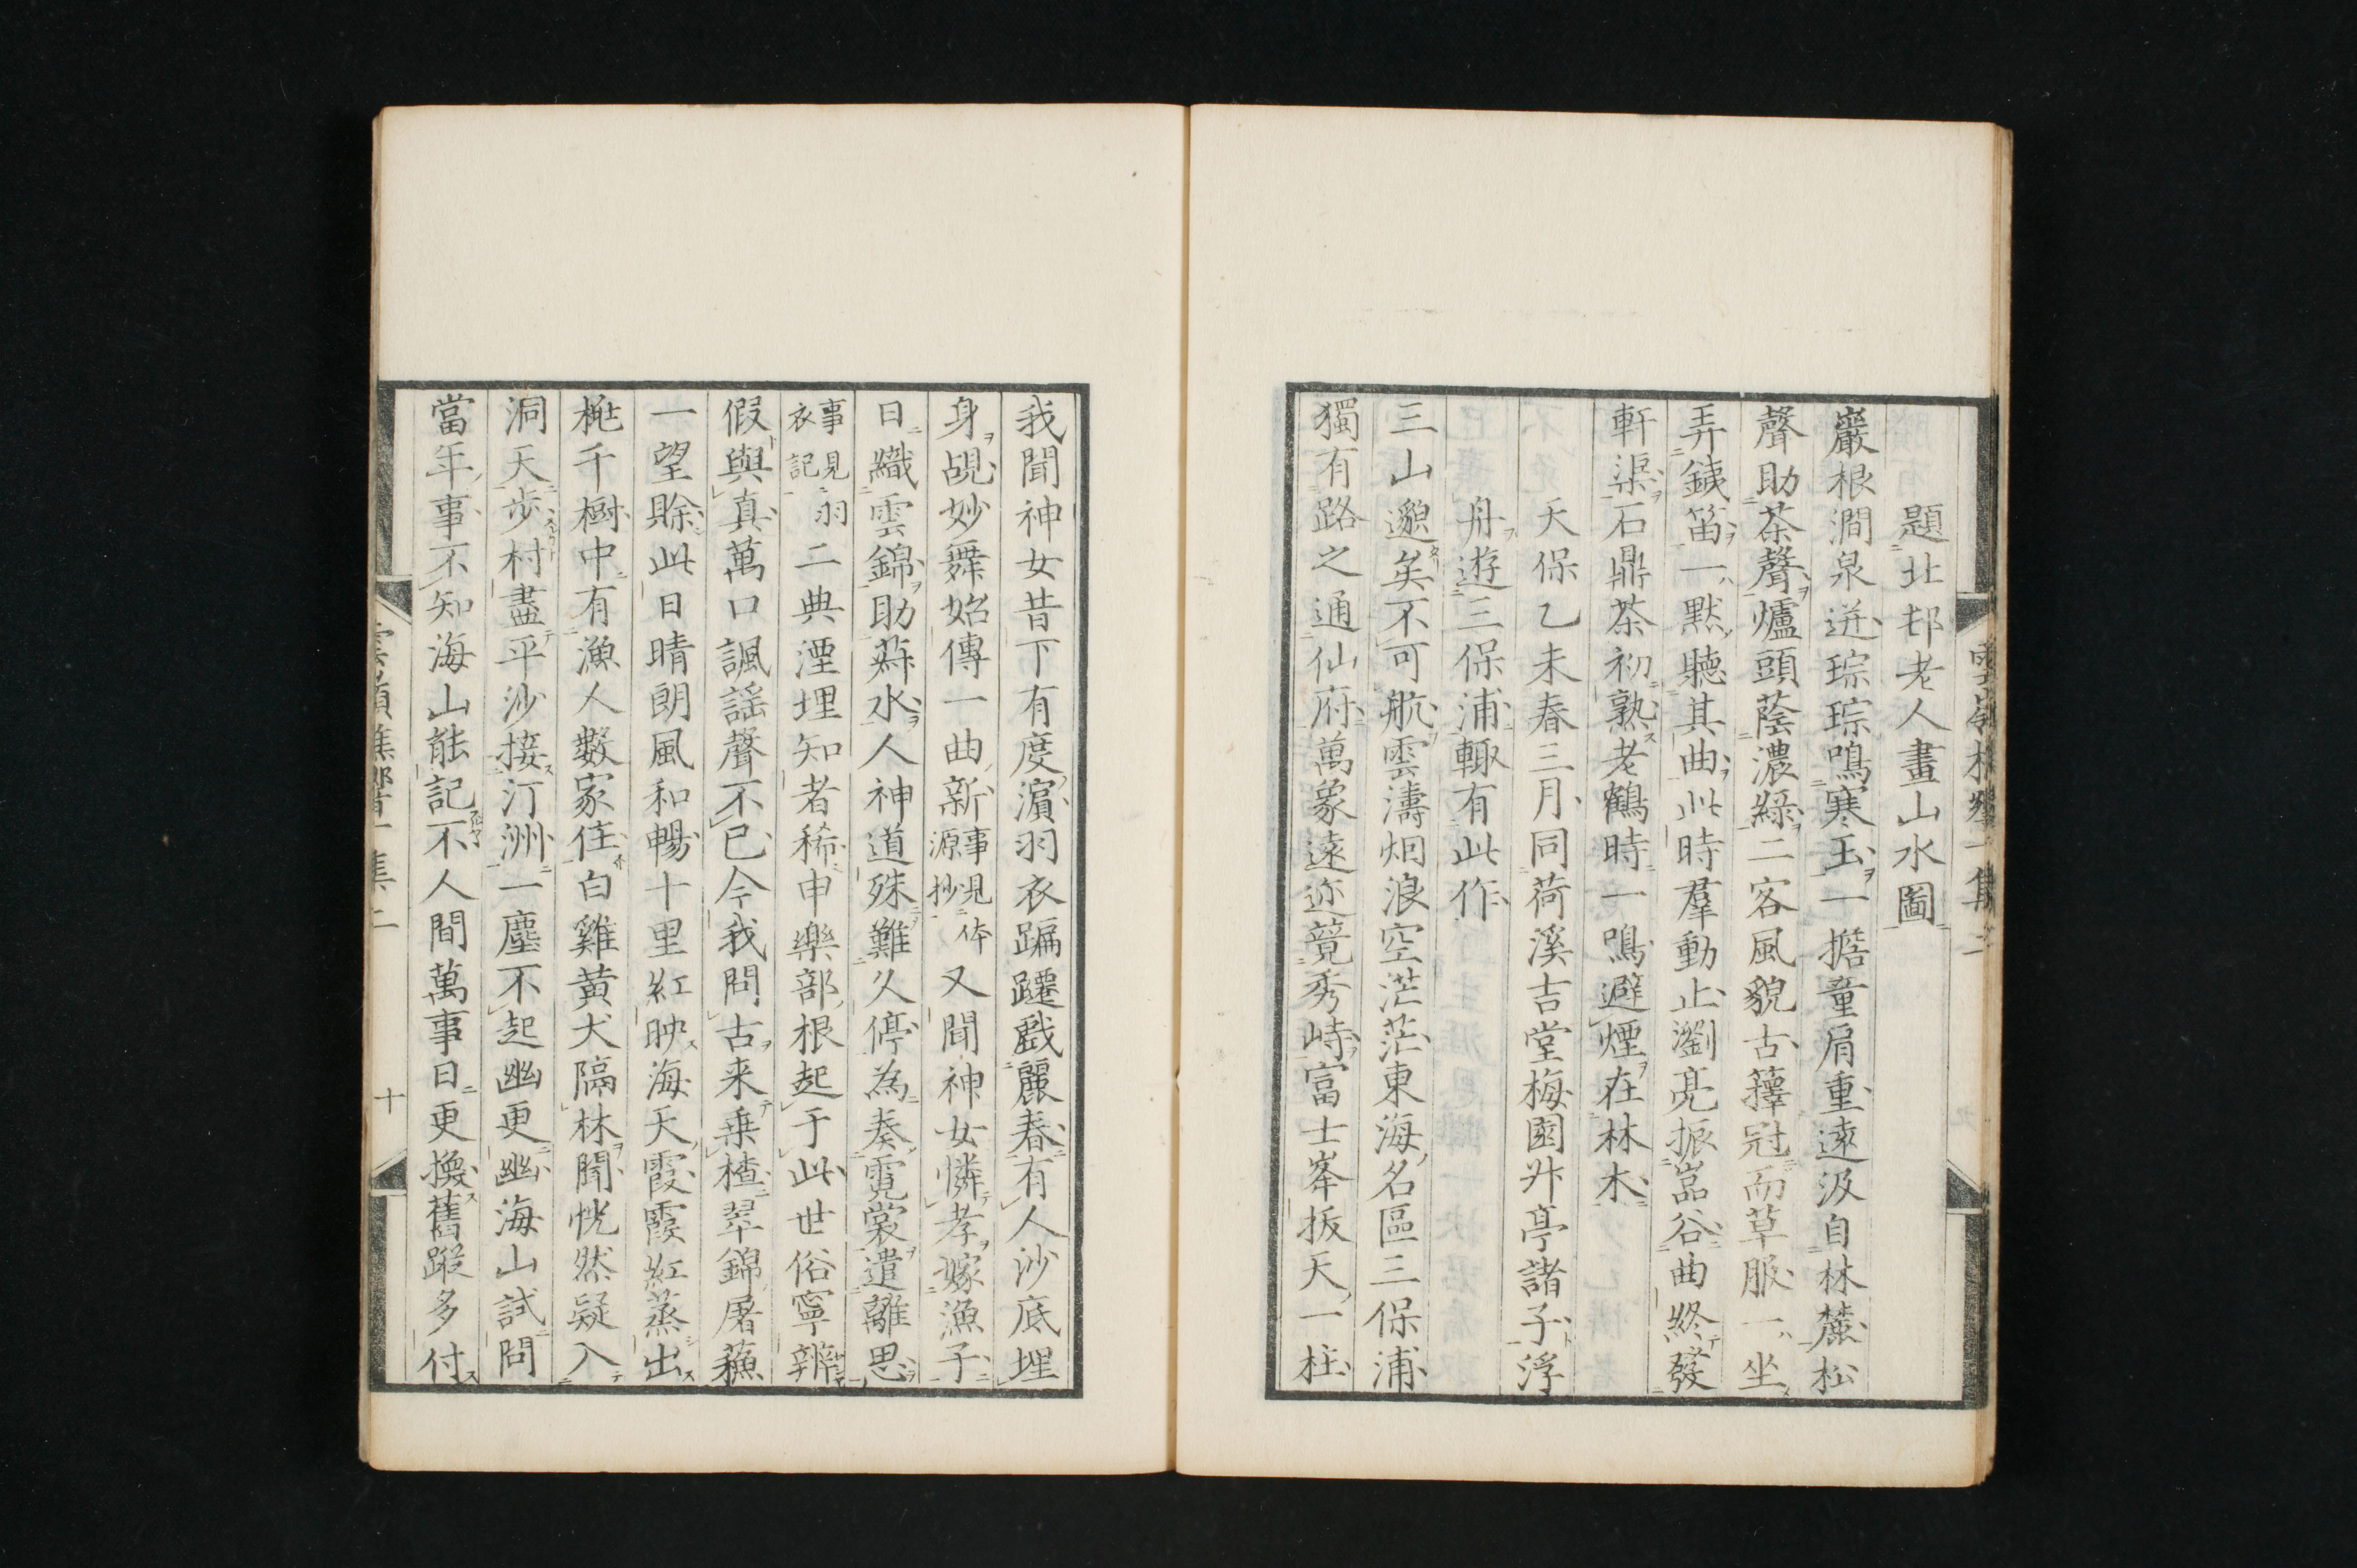 題北邨老人畫山水圖
巖根澗泉迸琮琮鳴寒玉一擔童肩重遠汲自林麓松
聲助茶聲爐頭蔭濃綠二客風貌古籜冠而草服一坐
弄鐵笛一默聽其曲此時羣動止瀏亮振嵓谷曲終發
軒渠石鼎茶初熟老鶴時一鳴避煙在林木
天保乙未春三月同荷溪吉堂梅園舛亭諸子浮
舟遊三保浦輙有此作
三山邈矣不可航雲濤烟浪空茫茫東海名區三保浦
獨有路之通仙府萬象遠迩競秀峙富士峯拔天一柱
我聞神女昔下有度濵羽衣蹁躚戲麗春有人沙底埋
身覘妙舞始傳一曲新事見体源抄又聞神女憐孝嫁漁子
日織雲錦助薪水人神道殊難久停為奏霓裳遣離思
事見羽衣記二典湮埋知者稀申樂部根起于此世俗寧辨
假與真萬口諷謡聲不已今我問古来乗楂翠錦屠蘓
一望賒此日晴朗風和暢十里紅映海天霞霞紅蒸出
桃千樹中有漁人數家住白雞黄犬隔林聞恍然疑入
洞天步村盡平沙接汀洲一塵不起幽更幽海山試問
當年事不知海山能記不人間萬事日更換舊蹤多付
十